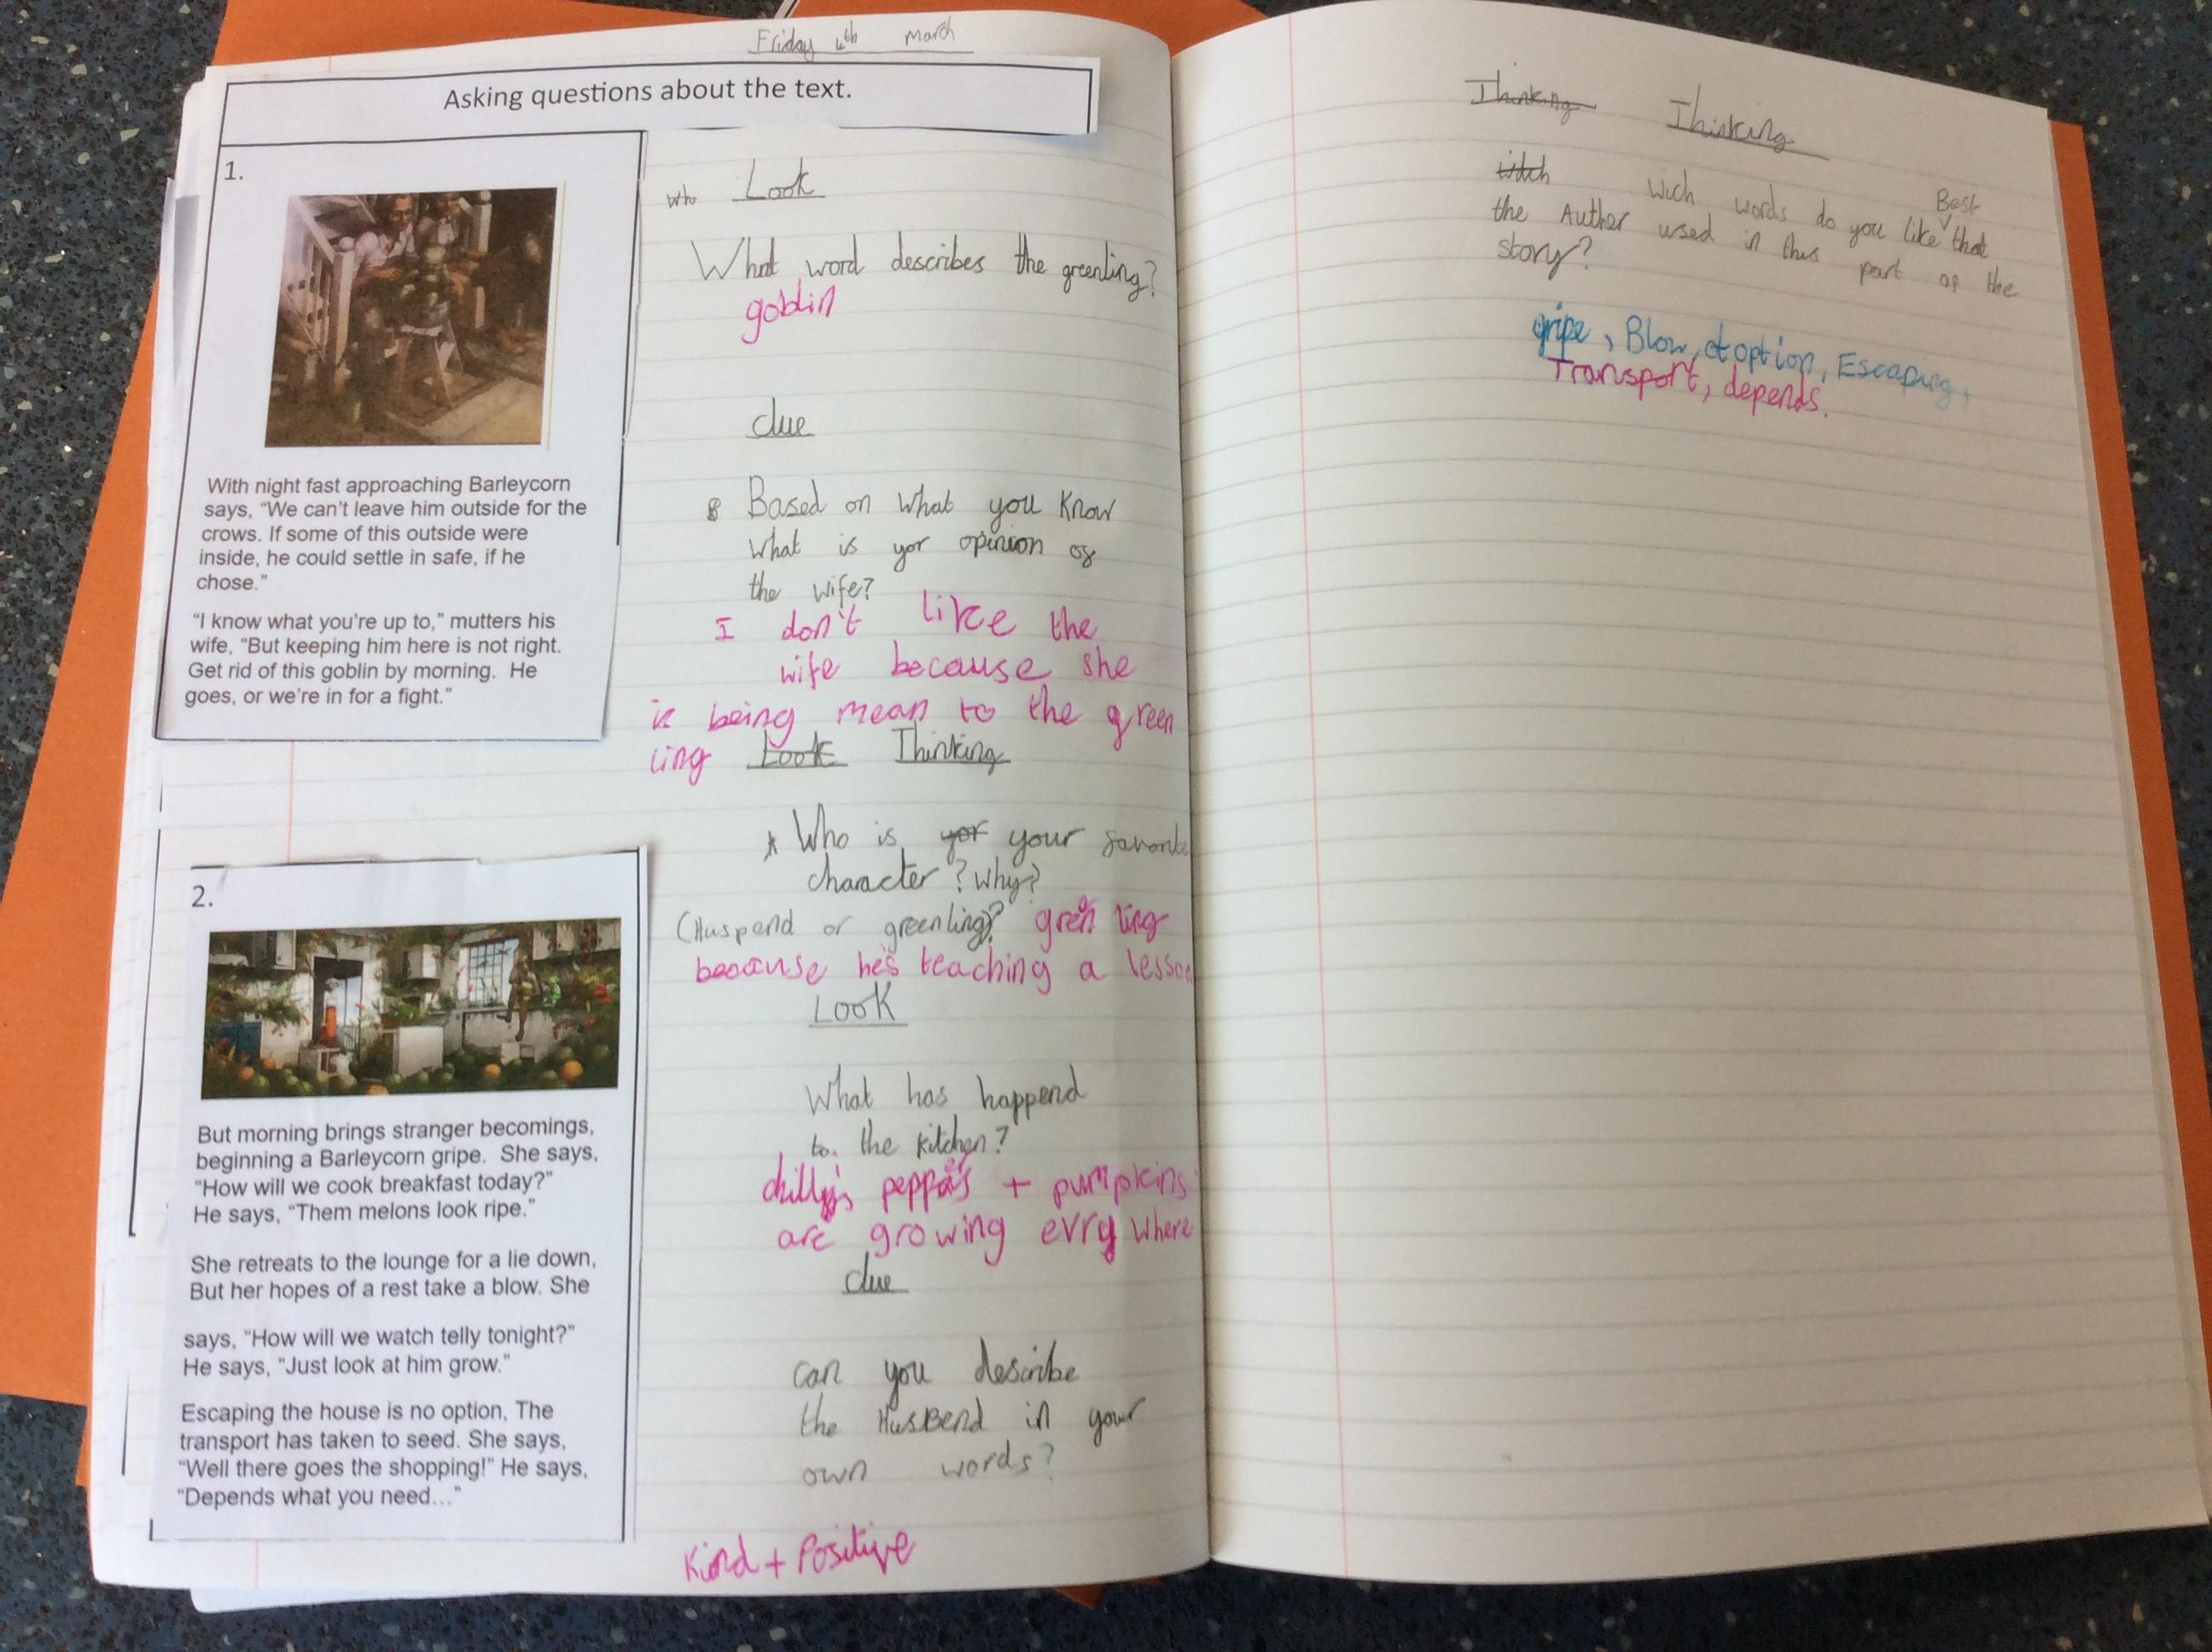 Friday 4th March
Asking questions about the text.
1.
With night fast approaching Barleycorn
says, “We can't leave him outside for the
crows. If some of this outside were
inside, he could settle in safe, if he
chose.”
“I know what you're up to,” mutters his
wife, “But keeping him here is not right.
Get rid of this goblin by morning. He
goes, or we're in for a fight.”
Who Look
What word describes the greenling?
goblin
clue
Based on what you know
what is yor opinion of
the wife?
I don't like the
wife because she
is being mean to the green
ling Look Thinking
Who is yor your favorite
character? Why?
(Huspend or greenling)? green ling
because he's teaching a lesson
2.
But morning brings stranger becomings,
beginning a Barleycorn gripe. She says,
“How will we cook breakfast today?”
He says, “Them melons look ripe.”
She retreats to the lounge for a lie down,
But her hopes of a rest take a blow. She
says, “How will we watch telly tonight?”
He says, “Just look at him grow.”
Escaping the house is no option, The
transport has taken to seed. She says,
“Well there goes the shopping!” He says,
“Depends what you need...”
Look
What has happend
to. the kitchen?
peppers + pumpkins
are growing evry where
clue
can you describe
the HusBend in your
own words?
Kind + Positive
Thinking Thinking
witch wich words do you like Best that
the Auther used in this part of the
story?
gripe, Blow, option, Escaping,
Transport, depends.